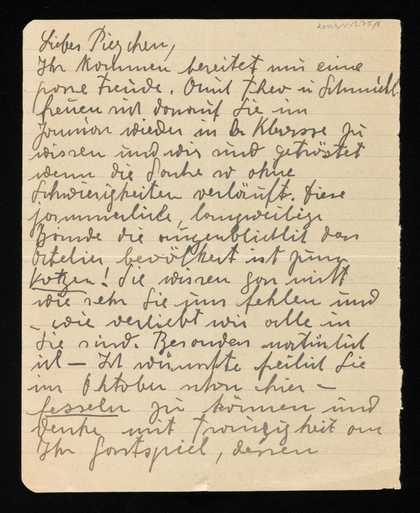 Liebes Pięzchen,
Ihr Kommen bereitet mir eine
grosse Freude. Auch Theo u Schmidtl.
freuen sich darauf Sie im
Januar wieder in der Klasse zu
wissen und wir sind getröstet
wenn die Sache so ohne
Schwierigkeiten verläuft. Diese
jämmerliche, langweilige
Bande die augenblicklich das
Atelier bevölkert ist zum
Kotzen! Sie wissen gar nicht
wie sehr Sie uns fehlen und
– wie verliebt wir alle in
Sie sind. Besonders natürlich
ich – Ich wünschte freilich Sie
im Oktober schon hier –
fesseln zu können und
denke mit Traurigkeit an
Ihr Gastspiel, dessen